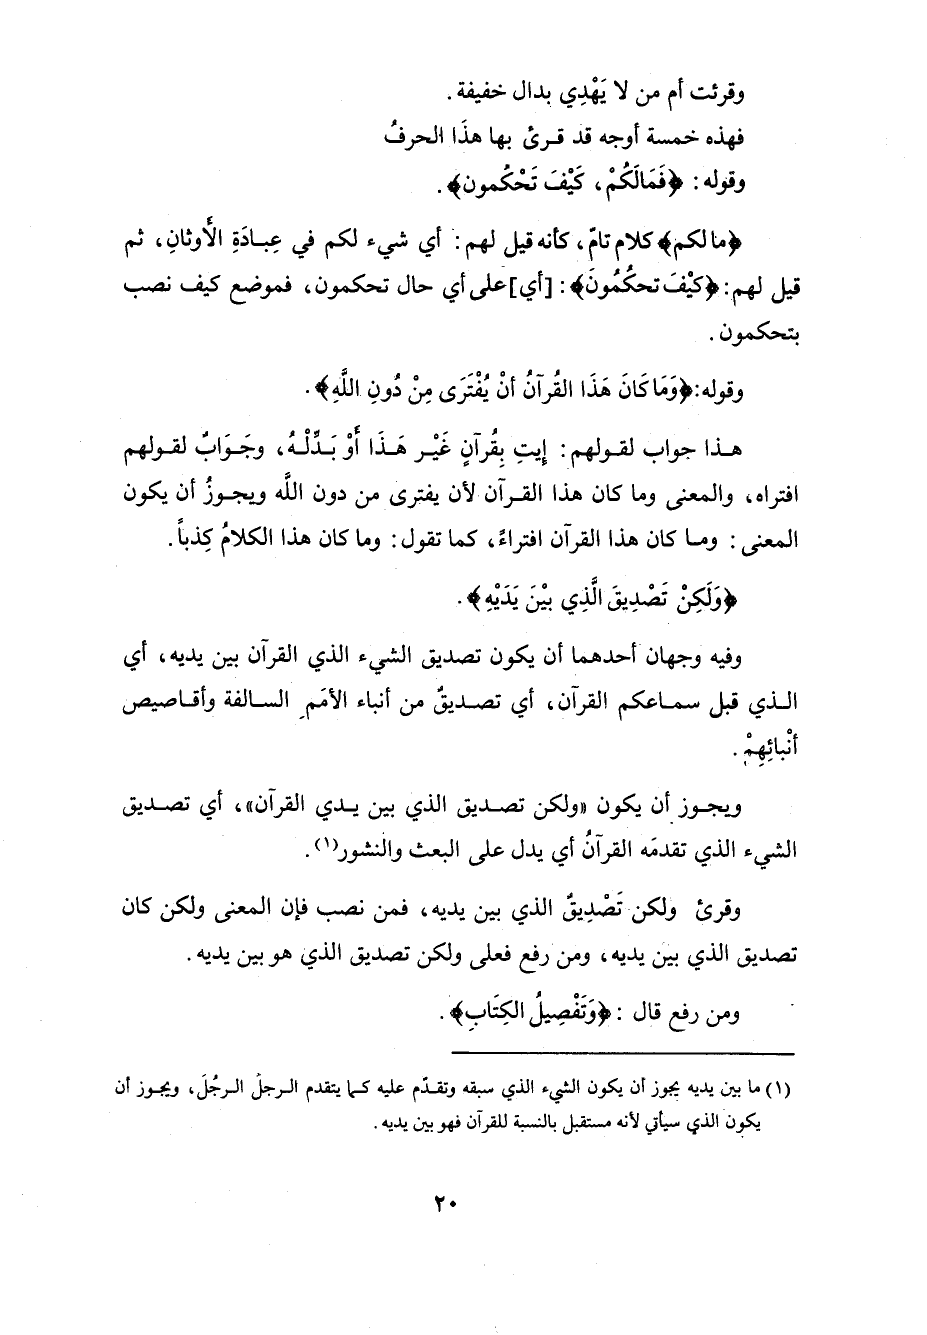 وقرئت أم من لا يَهْدِي بدال خفيفة .
فهذه خمسة أوجه قد قرئ بها هذَا الحرفُ
وقوله : ﴿فَمَالَكُمْ، كَيْفَ تَحْكُمون﴾ .
﴿مالكم﴾ كلام تامّ، كأنه قيل لهم : أي شيء لكم في عِبادَةِ الأَوثانِ، ثم
قيل لهم : ﴿كَيْفَ تحكُمُونَ﴾ : [أي] على أي حال تحكمون، فموضع كيف نصب
بتحكمون .
وقوله: ﴿وَمَا كَانَ هَذَا القُرآنُ أنْ يُفْتَرَى مِنْ دُونِ اللَّهِ﴾ .
هذا جواب لقولهم : إيتِ بِقُرآنٍ غَيْر هَذَا أَوْ بَدِّلْهُ، وجَوَابٌ لقولهم
افتراه، والمعنى وما كان هذا القرآن لأن يفترى من دون اللَّه ويجوزُ أن يكون
المعنى : وما كان هذا القرآن افتراءً، كما تقول : وما كان هذا الكلامُ كِذباً .
﴿وَلَكِنْ تَصْدِيقَ الَّذِي بيْنَ يَدَيْهِ﴾ .
وفيه وجهان أحدهما أن يكون تصديق الشيء الذي القرآن بين يديه، أي
الذي قبل سماعكم القرآن، أي تصديقُ من أنباء الأمَمِ السالفة وأقاصيص
أنْبائِهِمْ .
ويجوز أن يكون «ولكن تصديق الذي بين يدي القرآن»، أي تصديق
الشيء الذي تقدمَه القرآنُ أي يدل على البعث والنشور(١) .
وقرئ ولكن تَصْدِيقُ الذي بين يديه، فمن نصب فإن المعنى ولكن كان
تصديق الذي بين يديه، ومن رفع فعلى ولكن تصديق الذي هو بين يديه .
ومن رفع قال : ﴿وَتَفْصِيلُ الكِتَابِ﴾ .
(١) ما بين يديه يجوز أن يكون الشيء الذي سبقه وتقدّم عليه كما يتقدم الرجلُ الرجُلَ، ويجوز أن
يكون الذي سيأتي لأنه مستقبل بالنسبة للقرآن فهو بين يديه .
٢٠